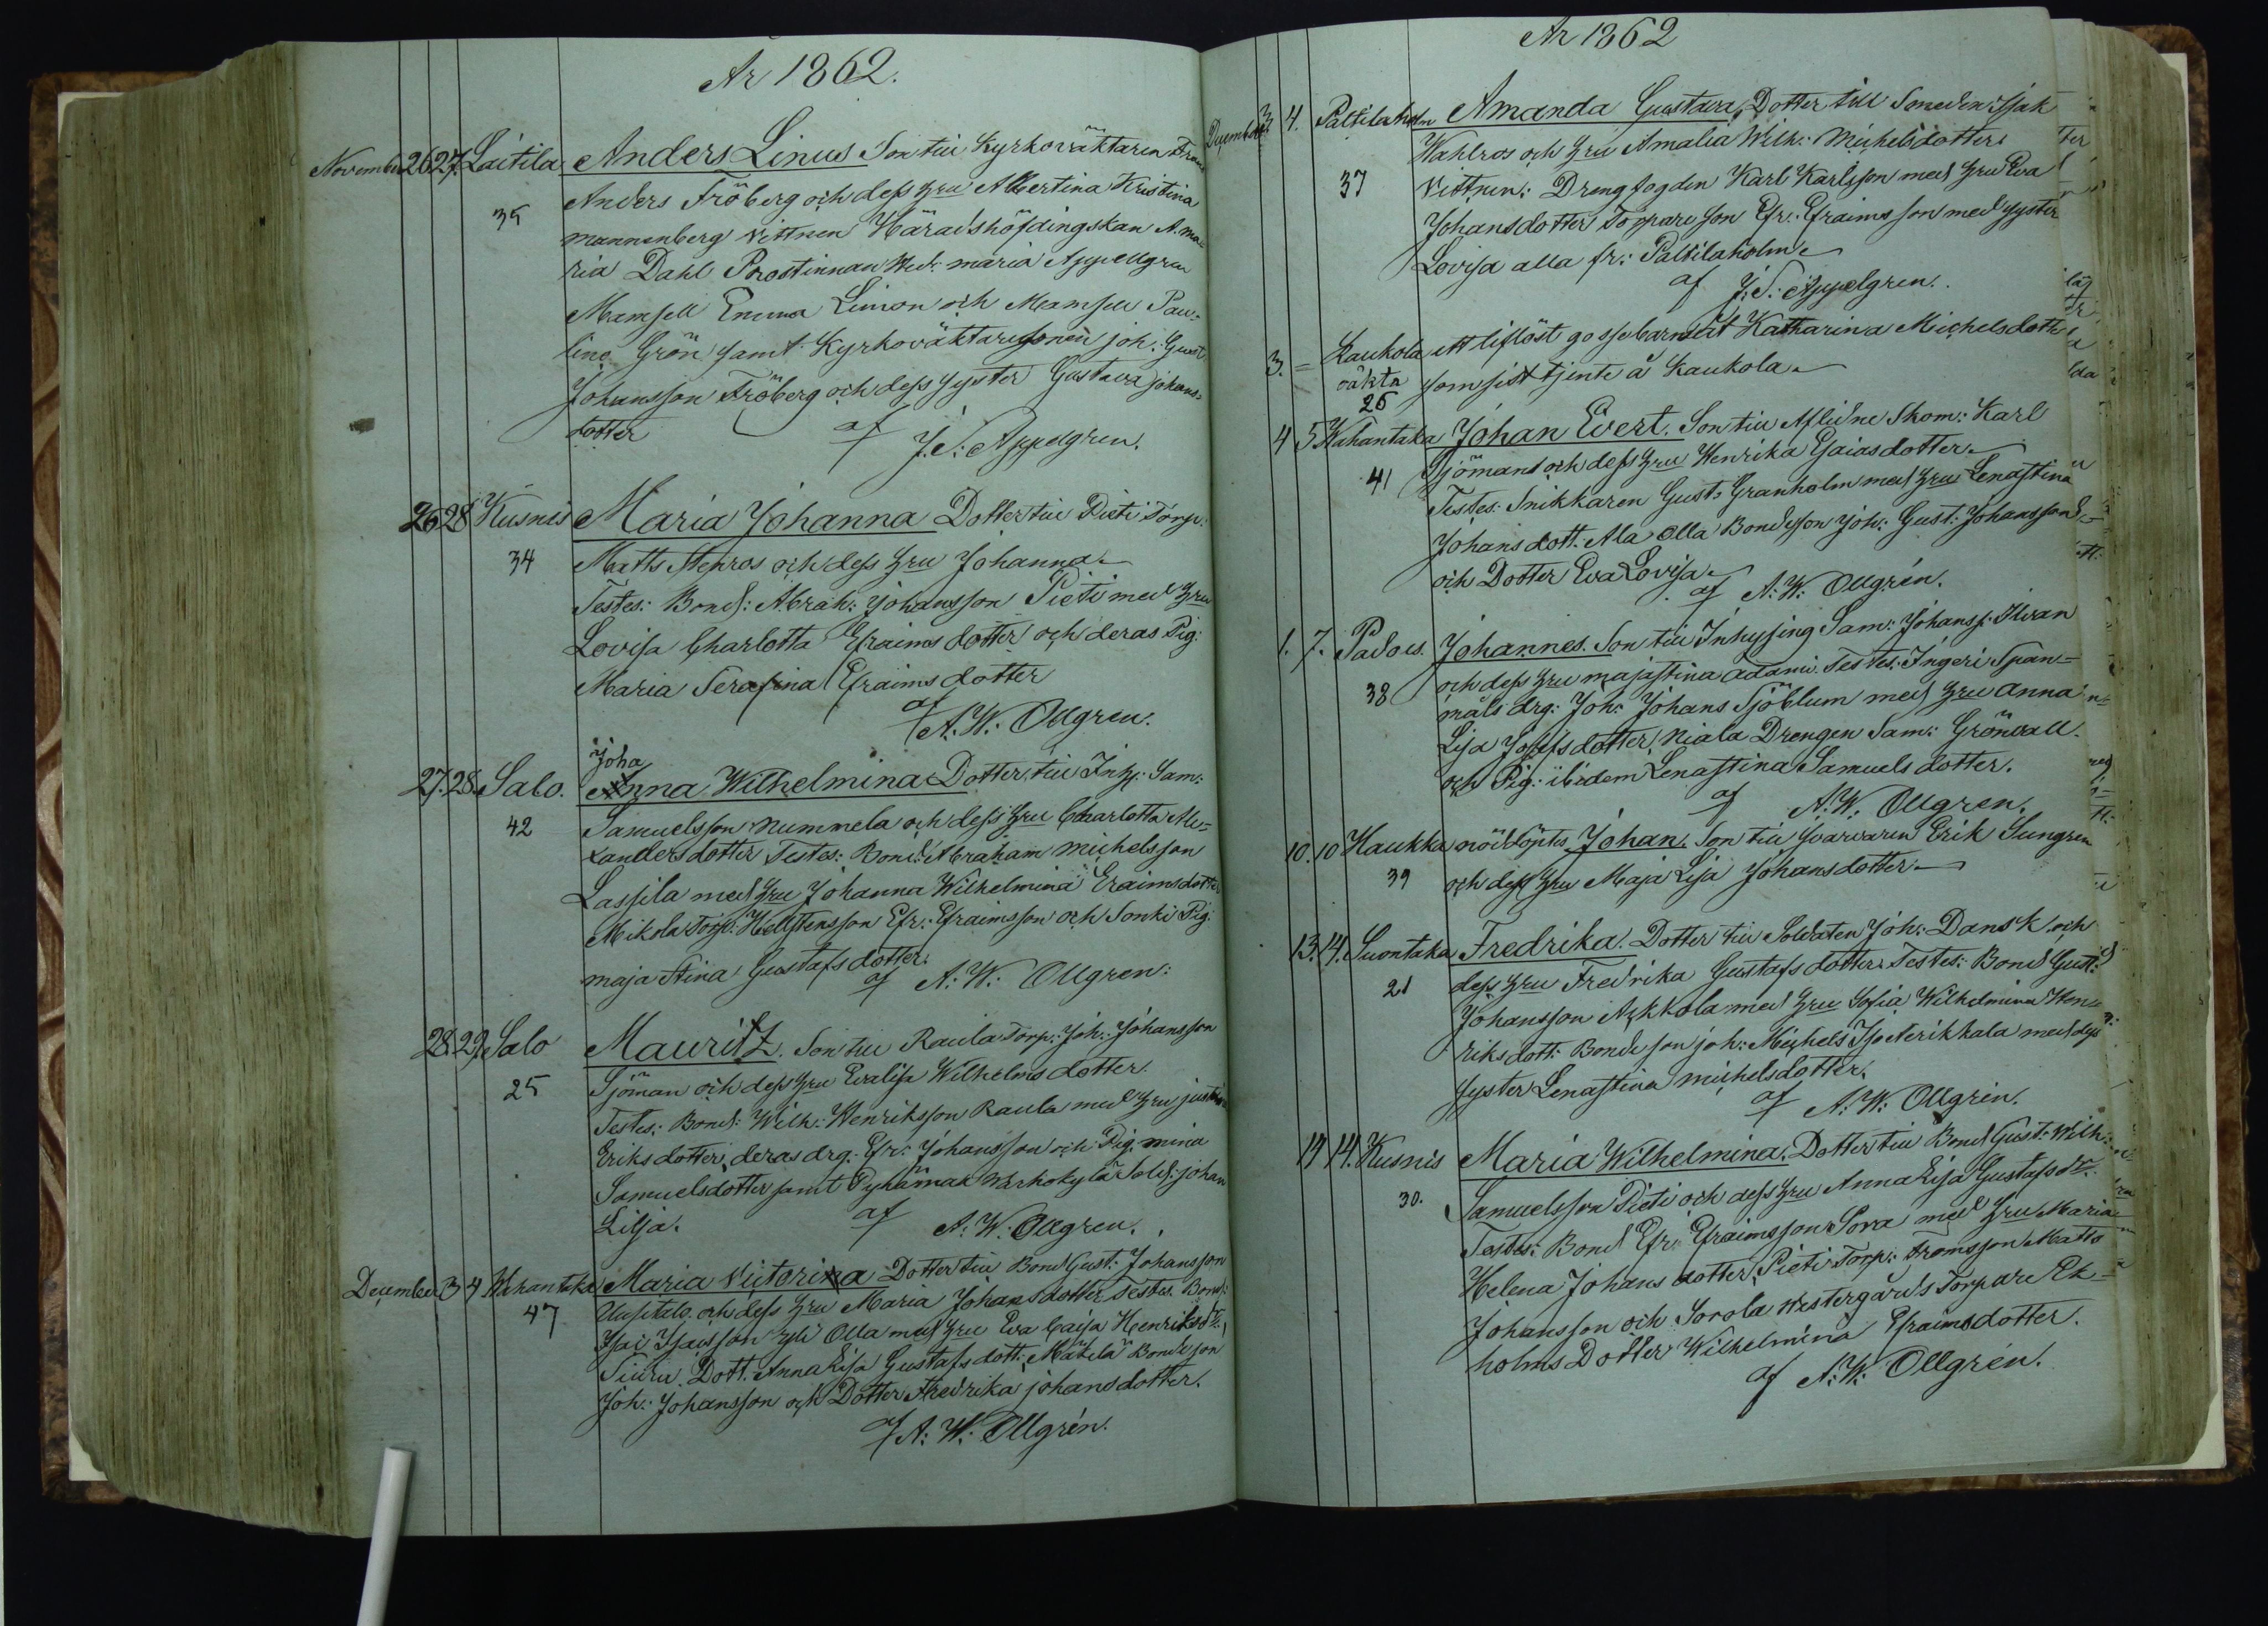 År 1862.
November 26 27. Laitila Anders Linus Son till Kyrkoväktaren Frans
35 Anders Fröberg och dess hru Albertina Kristina
Mannenberg Vittnen Häradshöfdingskan A. Ma-
ria Dahl Prostinnan Hed: Maria Appellgren
Mamsell Emma Limon och Mamsell Pau-
lina Grön samt Kyrkoväktaresonen Joh: Gust:
Johansson Fröberg och dess syster Gustava Johans-
dotter af J. S. Appelgren.
26 28 Kusnis Maria Johanna Dotter till Pieti Torp:
34 Matts Stepros och dess hru Johanna
Testes: Bond: Abrah: Johansson Pieti med hru
Lovisa Charlotta Efraims dotter och deras Pig:
Maria Serafina Efraims dotter
af A. W. Ollgren.
Joha
27. 28. Salo. Anna Wilhelmina Dotter till Inh: Sam:
42 Samuelsson Nummela och dess hru Charlotta Ale-
xanders dotter Testes: Bond: Abraham Michelsson
Lassila med hru Johanna Wilhelmina Eraimsdotter
Mikola Torp: Hellstensson Efr: Efraimsson och Sonki Pig:
Maja Stina Gustafs dotter.
af A: W: Ollgren:
28. 29. Salo Mauritz. Son till Raula Torp: Joh: Johansson
25 Sjöman och dess hru Evalisa Wilhelms dotter.
Testes: Bond: Wilh: Henriksson Raula med hru Justina
Eriks dotter, deras drg: Efr: Johansson och Pig: Mina
Samuelsdotter samt Pyhämaa Warhokylä Sold: Johan
Lilja. af A. W. Ollgren.
December 3 4 Wahantaka Maria Victorina Dotter till Bond Gust: Johansson
47 Uusitalo och dess hru Maria Johans dotter Testes. Bond:
Isai Isaksson Yli Olla med hru Eva Caisa Henriks dr:
Siuru Dott. Anna Lisa Gustafs dott: Mätilä Bondeson
Joh: Johansson och Dotter Fredrika Johans dotter.
af A: W: Ollgrén.
År 1862
December 3. 4. Paltilaholm Amanda Gustava, Dotter till Smeden Isak
Wahlros och hru Amalia Wilh: Michelsdotter
37 Vittnen: Drengfogden Karl Karlsson med hru Eva
Johansdotter Torpareson Efr: Efraimsson med syster
Lovisa alla fr: Paltilaholm
af J: S: Appelgren.
3. = Kaukola ett liflöst gossebarn Katharina Michelsdotter
oäkta som sist tjente å Kaukola
26
4 5 Wahantaka Johan Evert. Son till Aflidne Skom: Karl
41 Sjömans och dess hru Henrika Esaias dotter
Testes: Snikkaren Gust: Granholm med hru Lenastina
Johans dott. Ala Olla Bondeson Joh: Gust: Johansson
och Dotter Eva Lovisa
af A. W. Ollgrén.
1. 7. Padois. Johannes. Son till Inhysing Sam: Johanss: Ilvan
och dess hru Majastina Adami. Testes: Ingeri Span-
38 måls drg: Joh: Johans Sjöblum med hru Anna
Lisa Josefs dotter, Niala Drengen Sam: Grönvall.
och Pig: ibidem Lenastina Samuels dotter.
af A. W. Ollgren.
10. 10 Haukka nöddöptes Johan. Son till Gvarvaren Erik Sungren
39 och dess hru Maja Lisa Johansdotter
13. 14. Suontaka Fredrika. Dotter till Soldaten Joh: Dansk och
21 dess hru Fredrika Gustafs dotter Testes: Bond Gust:
Johansson Aękkola med hru Sofia Wilhelmina Hen-
riks dott: Bondeson Joh: Michels Iso Nerikkala med dess
syster Lenastina Michelsdotter.
af A: W: Ollgrén.
14 14. Kusnis Maria Wilhelmina. Dotter till Bond Gust: Wilh:
30. Samuelsson Pieti och dess hru Anna Lisa Gustafs dr.
Testes: Bond Efr: Efraimsson Sorva med hru Maria
Helena Johans dotter, Pieti Torp: Fromsson Matts
Johansson och Sorola Westergårds Torpare Ek-
holms Dotter Wilhelmina Efraimsdotter.
af A: W: Ollgrén.